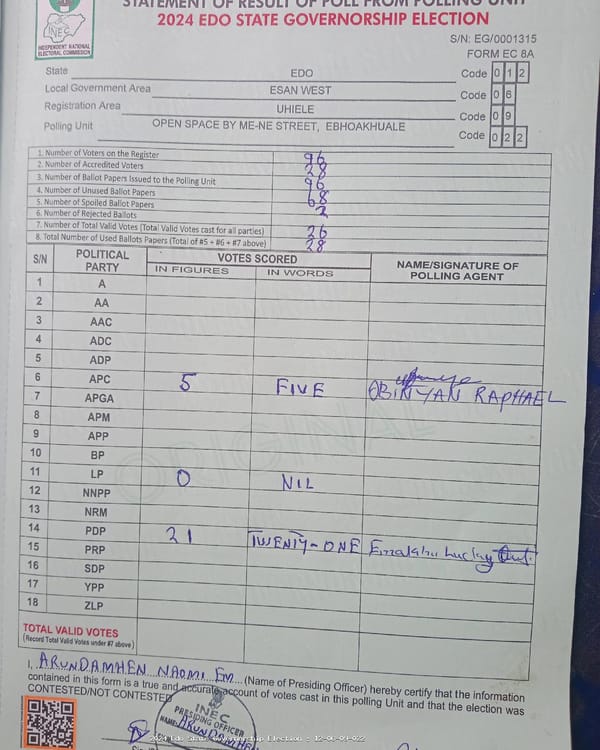 INEC
INDEPENDENT NATIONAL
ELECTORAL COMMISSION
STATEMENT OF RESULT OF POLL FROM POLLING UNIT
2024 EDO STATE GOVERNORSHIP ELECTION
S/N: EG/0001315
FORM EC 8A
State EDO Code 0 1 2
Local Government Area ESAN WEST Code 0 6
Registration Area UHIELE Code 0 9
Polling Unit OPEN SPACE BY ME-NE STREET, EBHOAKHUALE Code 0 2 2
1. Number of Voters on the Register 96
2. Number of Accredited Voters 28
3. Number of Ballot Papers Issued to the Polling Unit 96
4. Number of Unused Ballot Papers 68
5. Number of Spoiled Ballot Papers
6. Number of Rejected Ballots 2
7. Number of Total Valid Votes (Total Valid Votes cast for all parties) 26
8. Total Number of Used Ballots Papers (Total of #5 + #6 + #7 above) 28
S/N POLITICAL PARTY VOTES SCORED NAME/SIGNATURE OF POLLING AGENT
IN FIGURES IN WORDS
1 A
2 AA
3 AAC
4 ADC
5 ADP
6 APC 5 FIVE OBINYAN RAPHAEL
7 APGA
8 APM
9 APP
10 BP
11 LP 0 NIL
12 NNPP
13 NRM
14 PDP 21 TWENTY-ONE
15 PRP
16 SDP
17 YPP
18 ZLP
ORIGINAL
TOTAL VALID VOTES
(Record Total Valid Votes under #7 above)
I, ARUNDAMHEN NAOMI Em (Name of Presiding Officer) hereby certify that the information
contained in this form is a true and accurate account of votes cast in this polling Unit and that the election was
CONTESTED/NOT CONTESTED
INEC
PRESIDING OFFICER
NAME: ARUNDAMHEN
2024 Edo State Governorship Election : 12-06-09-022